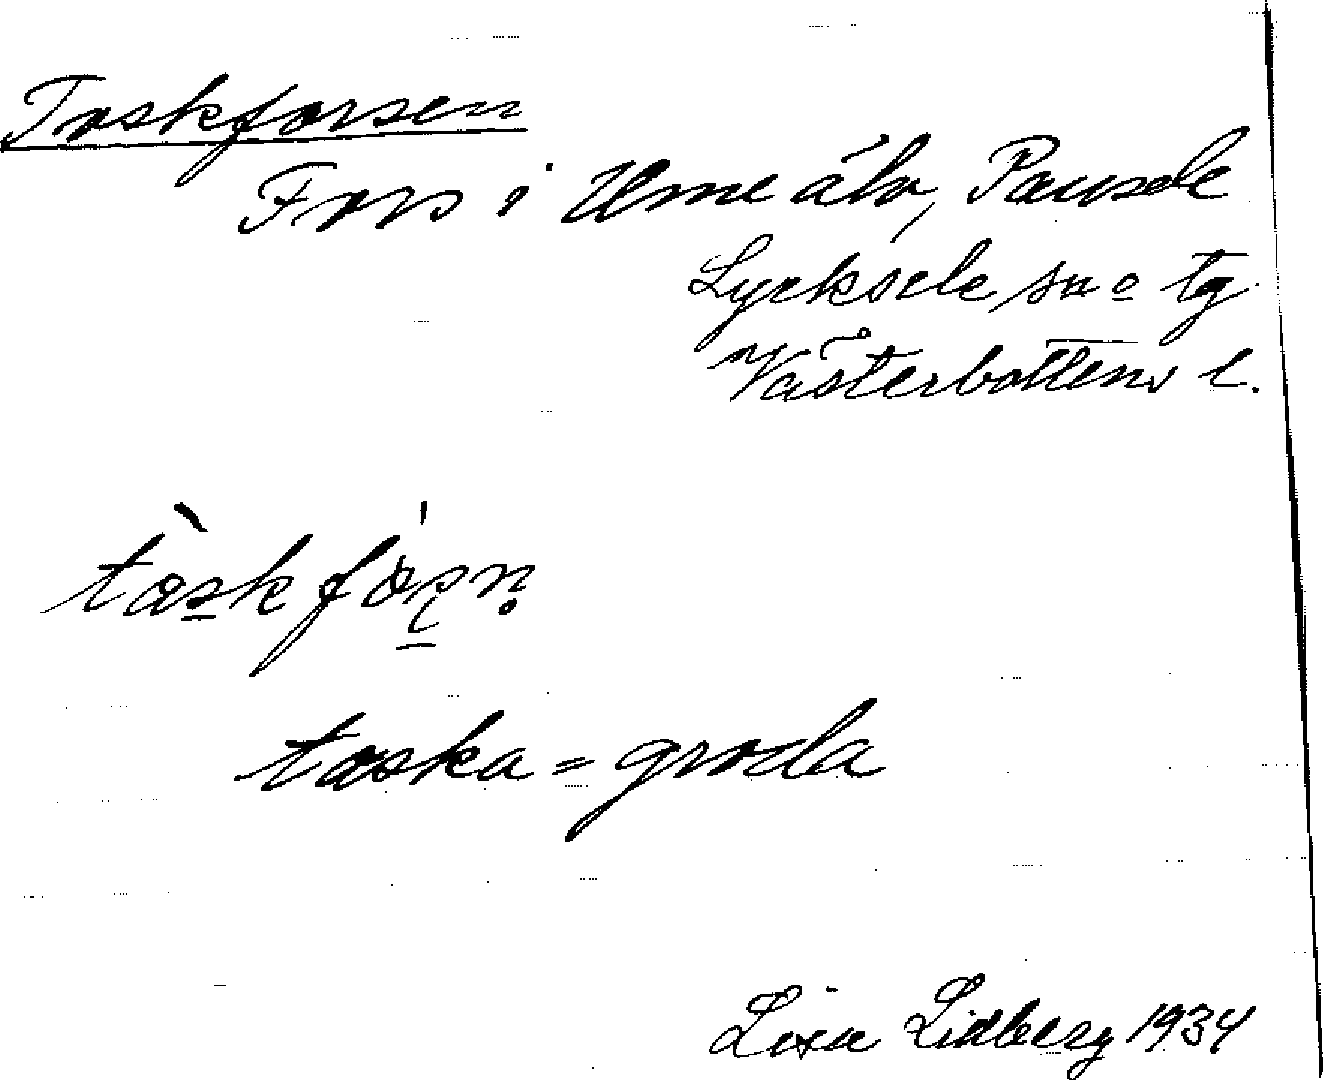 Toskforsen
Fors i Ume älv, Pausele
Lycksele sn o tg
Västerbottens l.
tòskfòṣṇ
toska = groda
Lisa Lidberg 1934